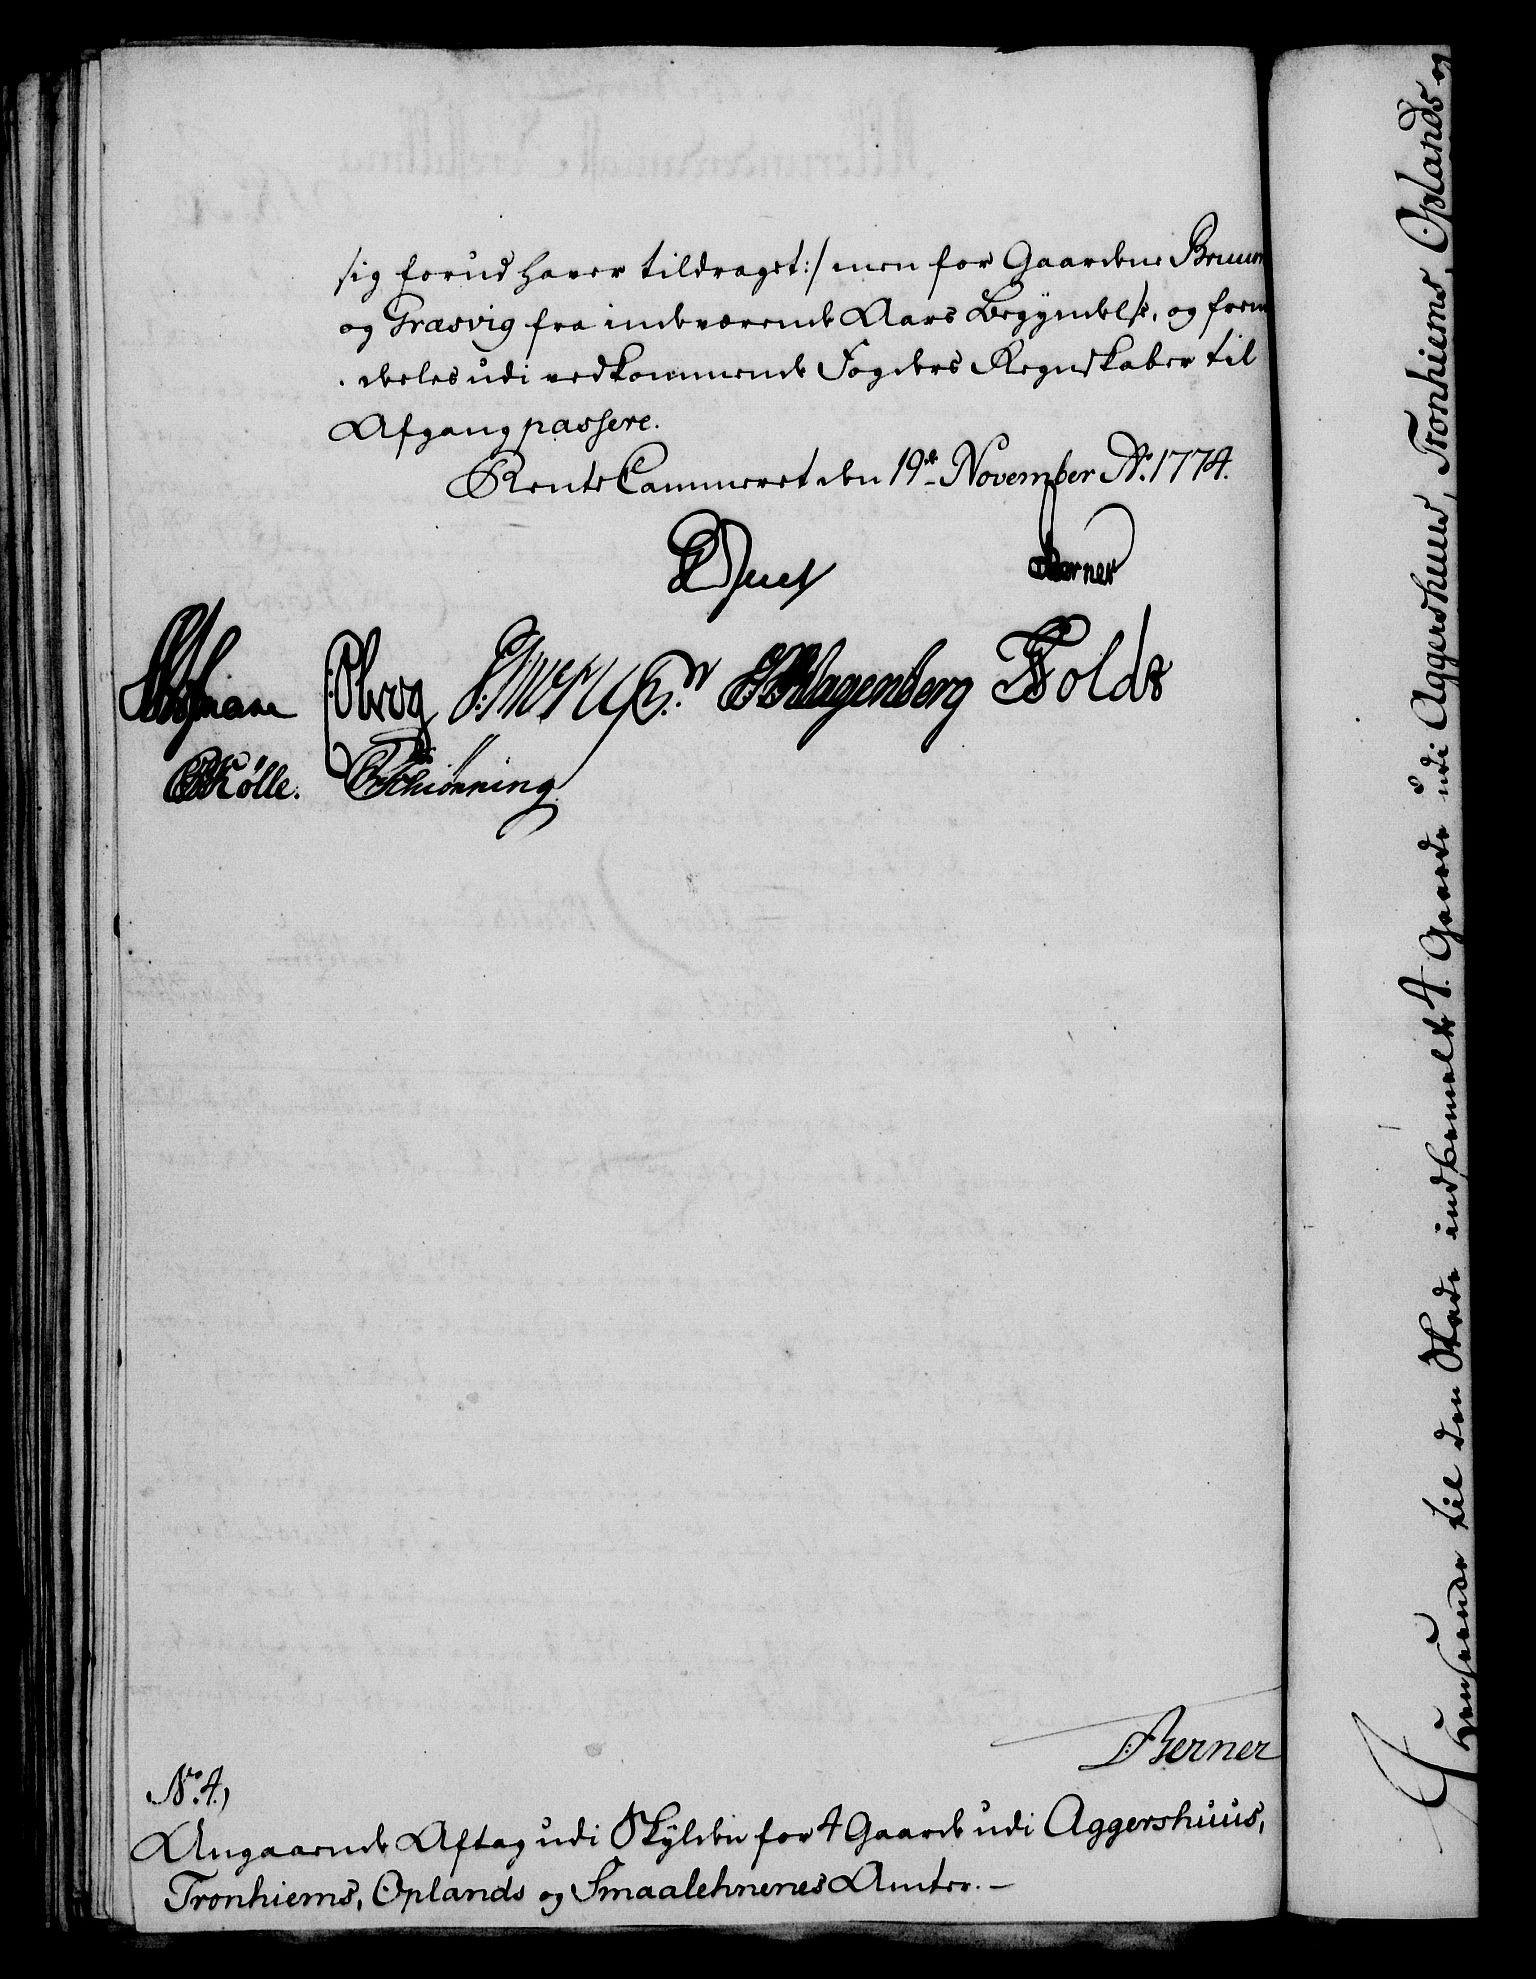 sig forud haver tildraget:/ men for Gaardene Bruun
og Græsvig fra indeværende Aars Begyndelse, og frem
deles udi vedkommende Fogders Regnskaber til
Afgang passere.
Rente Cammeret den 19de November Ao. 1774.
Juel Berner
Selmer Wagenberg Foldt
Kølle. Schiønning
Berner
No. 4,
Angaaende Aftag udi Skylden for 4 Gaarde udi Aggershuus,
Tronhiems, Oplands og Smaalehnenes Amter.
Henseende til den Skade indbemelte 4. Gaarde udi Aggershuus, Tronhiems, Oplands og